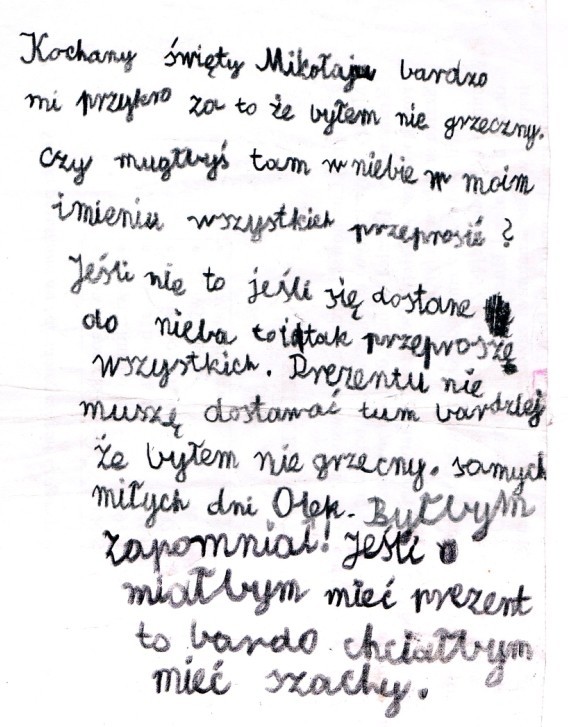 Kochany święty Mikołaju bardzo
mi przykro za to że byłem nie grzeczny.
Czy mugłbyś tam w niebie w moim
imieniu wszystkich przeprosić?
Jeśli nie to jeśli się dostane
do nieba to i tak przeproszę
wszystkich. Prezentu nie
muszę dostawać tum bardziej
że byłem nie grzecny. samych
miłych dni Olek. Byłbym
zapomniał! Jeśli
miałbym mieć prezent
to bardo chciałbym
mieć szachy.